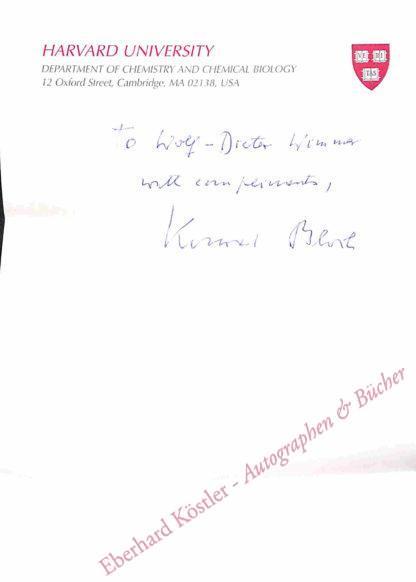 HARVARD UNIVERSITY
DEPARTMENT OF CHEMISTRY AND CHEMICAL BIOLOGY
12 Oxford Street, Cambridge, MA 02138, USA
To Wolf-Dieter Wimmer
with compliments,
Konrad Bloch
Eberhard Köstler - Autographen & Bücher